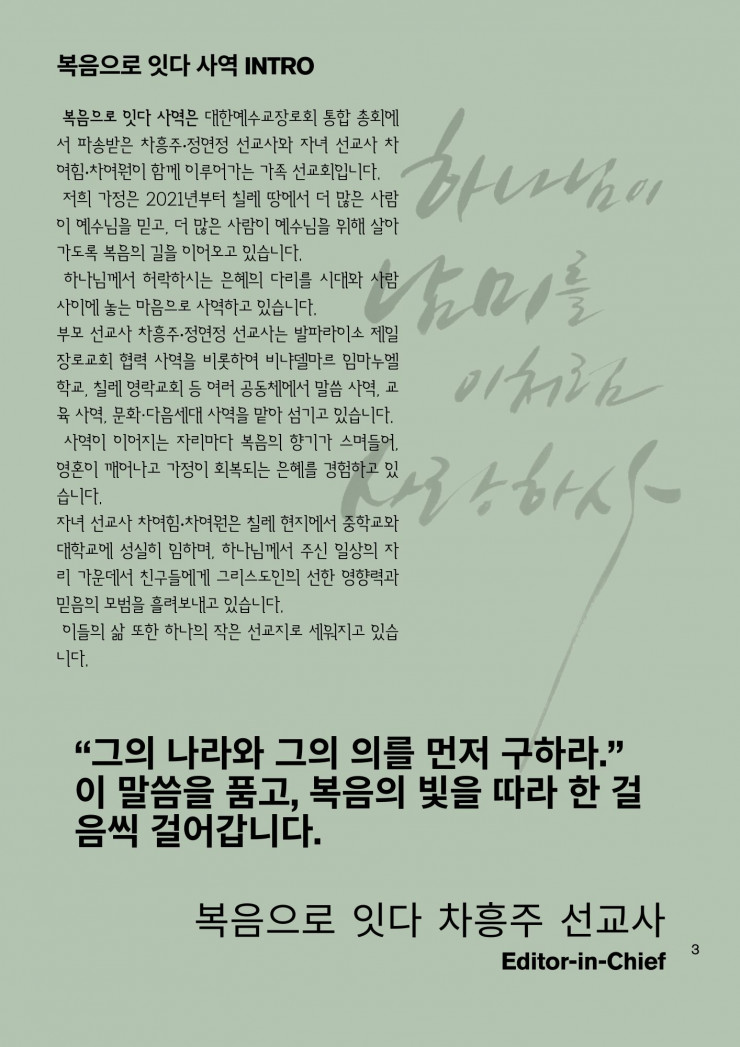 복음으로 잇다 사역 INTRO
복음으로 잇다 사역은 대한예수교장로회 통합 총회에
서 파송받은 차흥주·정연정 선교사와 자녀 선교사 차
여힘·차여원이 함께 이루어가는 가족 선교회입니다.
저희 가정은 2021년부터 칠레 땅에서 더 많은 사람
이 예수님을 믿고, 더 많은 사람이 예수님을 위해 살아
가도록 복음의 길을 이어오고 있습니다.
하나님께서 허락하시는 은혜의 다리를 시대와 사람
사이에 놓는 마음으로 사역하고 있습니다.
부모 선교사 차흥주·정연정 선교사는 발파라이소 제일
장로교회 협력 사역을 비롯하여 비냐델마르 임마누엘
학교, 칠레 영락교회 등 여러 공동체에서 말씀 사역, 교
육 사역, 문화·다음세대 사역을 맡아 섬기고 있습니다.
사역이 이어지는 자리마다 복음의 향기가 스며들어,
영혼이 깨어나고 가정이 회복되는 은혜를 경험하고 있
습니다.
자녀 선교사 차여힘·차여원은 칠레 현지에서 중학교와
대학교에 성실히 임하며, 하나님께서 주신 일상의 자
리 가운데서 친구들에게 그리스도인의 선한 영향력과
믿음의 모범을 흘려보내고 있습니다.
이들의 삶 또한 하나의 작은 선교지로 세워지고 있습
니다.
하나님이
남미를
이처럼
사랑하사
“그의 나라와 그의 의를 먼저 구하라.”
이 말씀을 품고, 복음의 빛을 따라 한 걸
음씩 걸어갑니다.
복음으로 잇다 차흥주 선교사
Editor-in-Chief
3